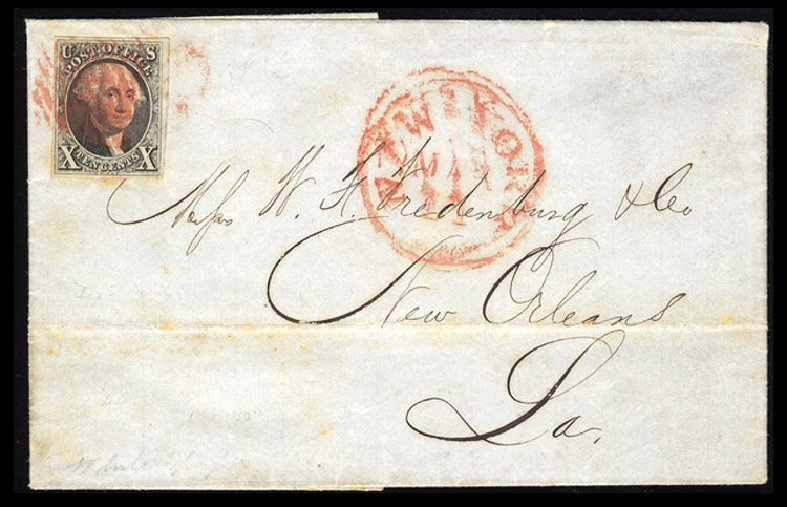 U S
POST OFFICE
X TEN CENTS X
NEW YORK
MAR
Messrs W. H. Fredenburg & Co.
New Orleans
La.